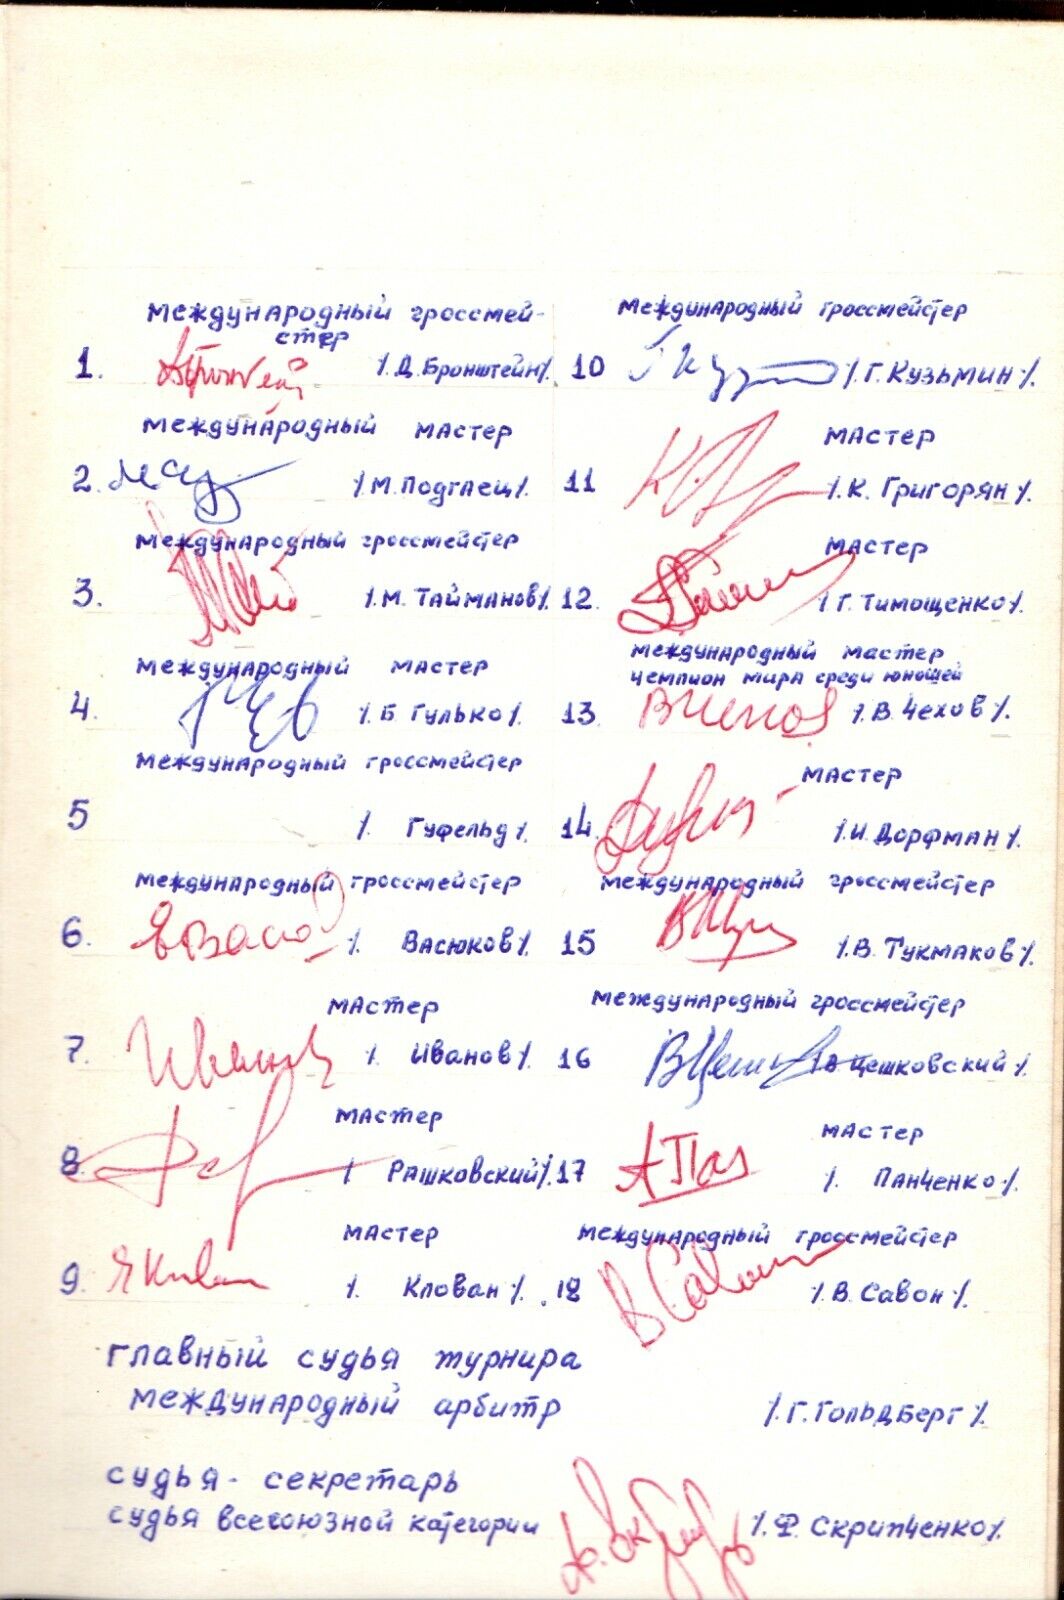 международный гроссмей-
стер
1. /. Д. Бронштейн/.
международный мастер
2. /. М. Подгаец/.
международный гроссмейстер
3. /. М. Тайманов/.
международный мастер
4. /. Б. Гулько/.
международный гроссмейстер
5 /. Гуфельд/.
международный гроссмейстер
6. /. Васюков/.
мастер
7. /. Иванов/.
мастер
8 /. Рашковский/.
мастер
9. /. Клован/.
международный гроссмейстер
10 /. Г. Кузьмин/.
мастер
11 /. К. Григорян/.
мастер
12. /. Г. Тимощенко/.
международный мастер
чемпион мира среди юношей
13. /. В. Чехов/.
мастер
14. /. И. Дорфман/.
международный гроссмейстер
15 /. В. Тукмаков/.
международный гроссмейстер
16 В Цешковский/.
мастер
17 /. Панченко/.
международный гроссмейстер
18 /. В. Савон/.
главный судья турнира
международный арбитр /. Г. Гольдберг/.
судья - секретарь
судья всесоюзной категории /. Ф. Скрипченко/.